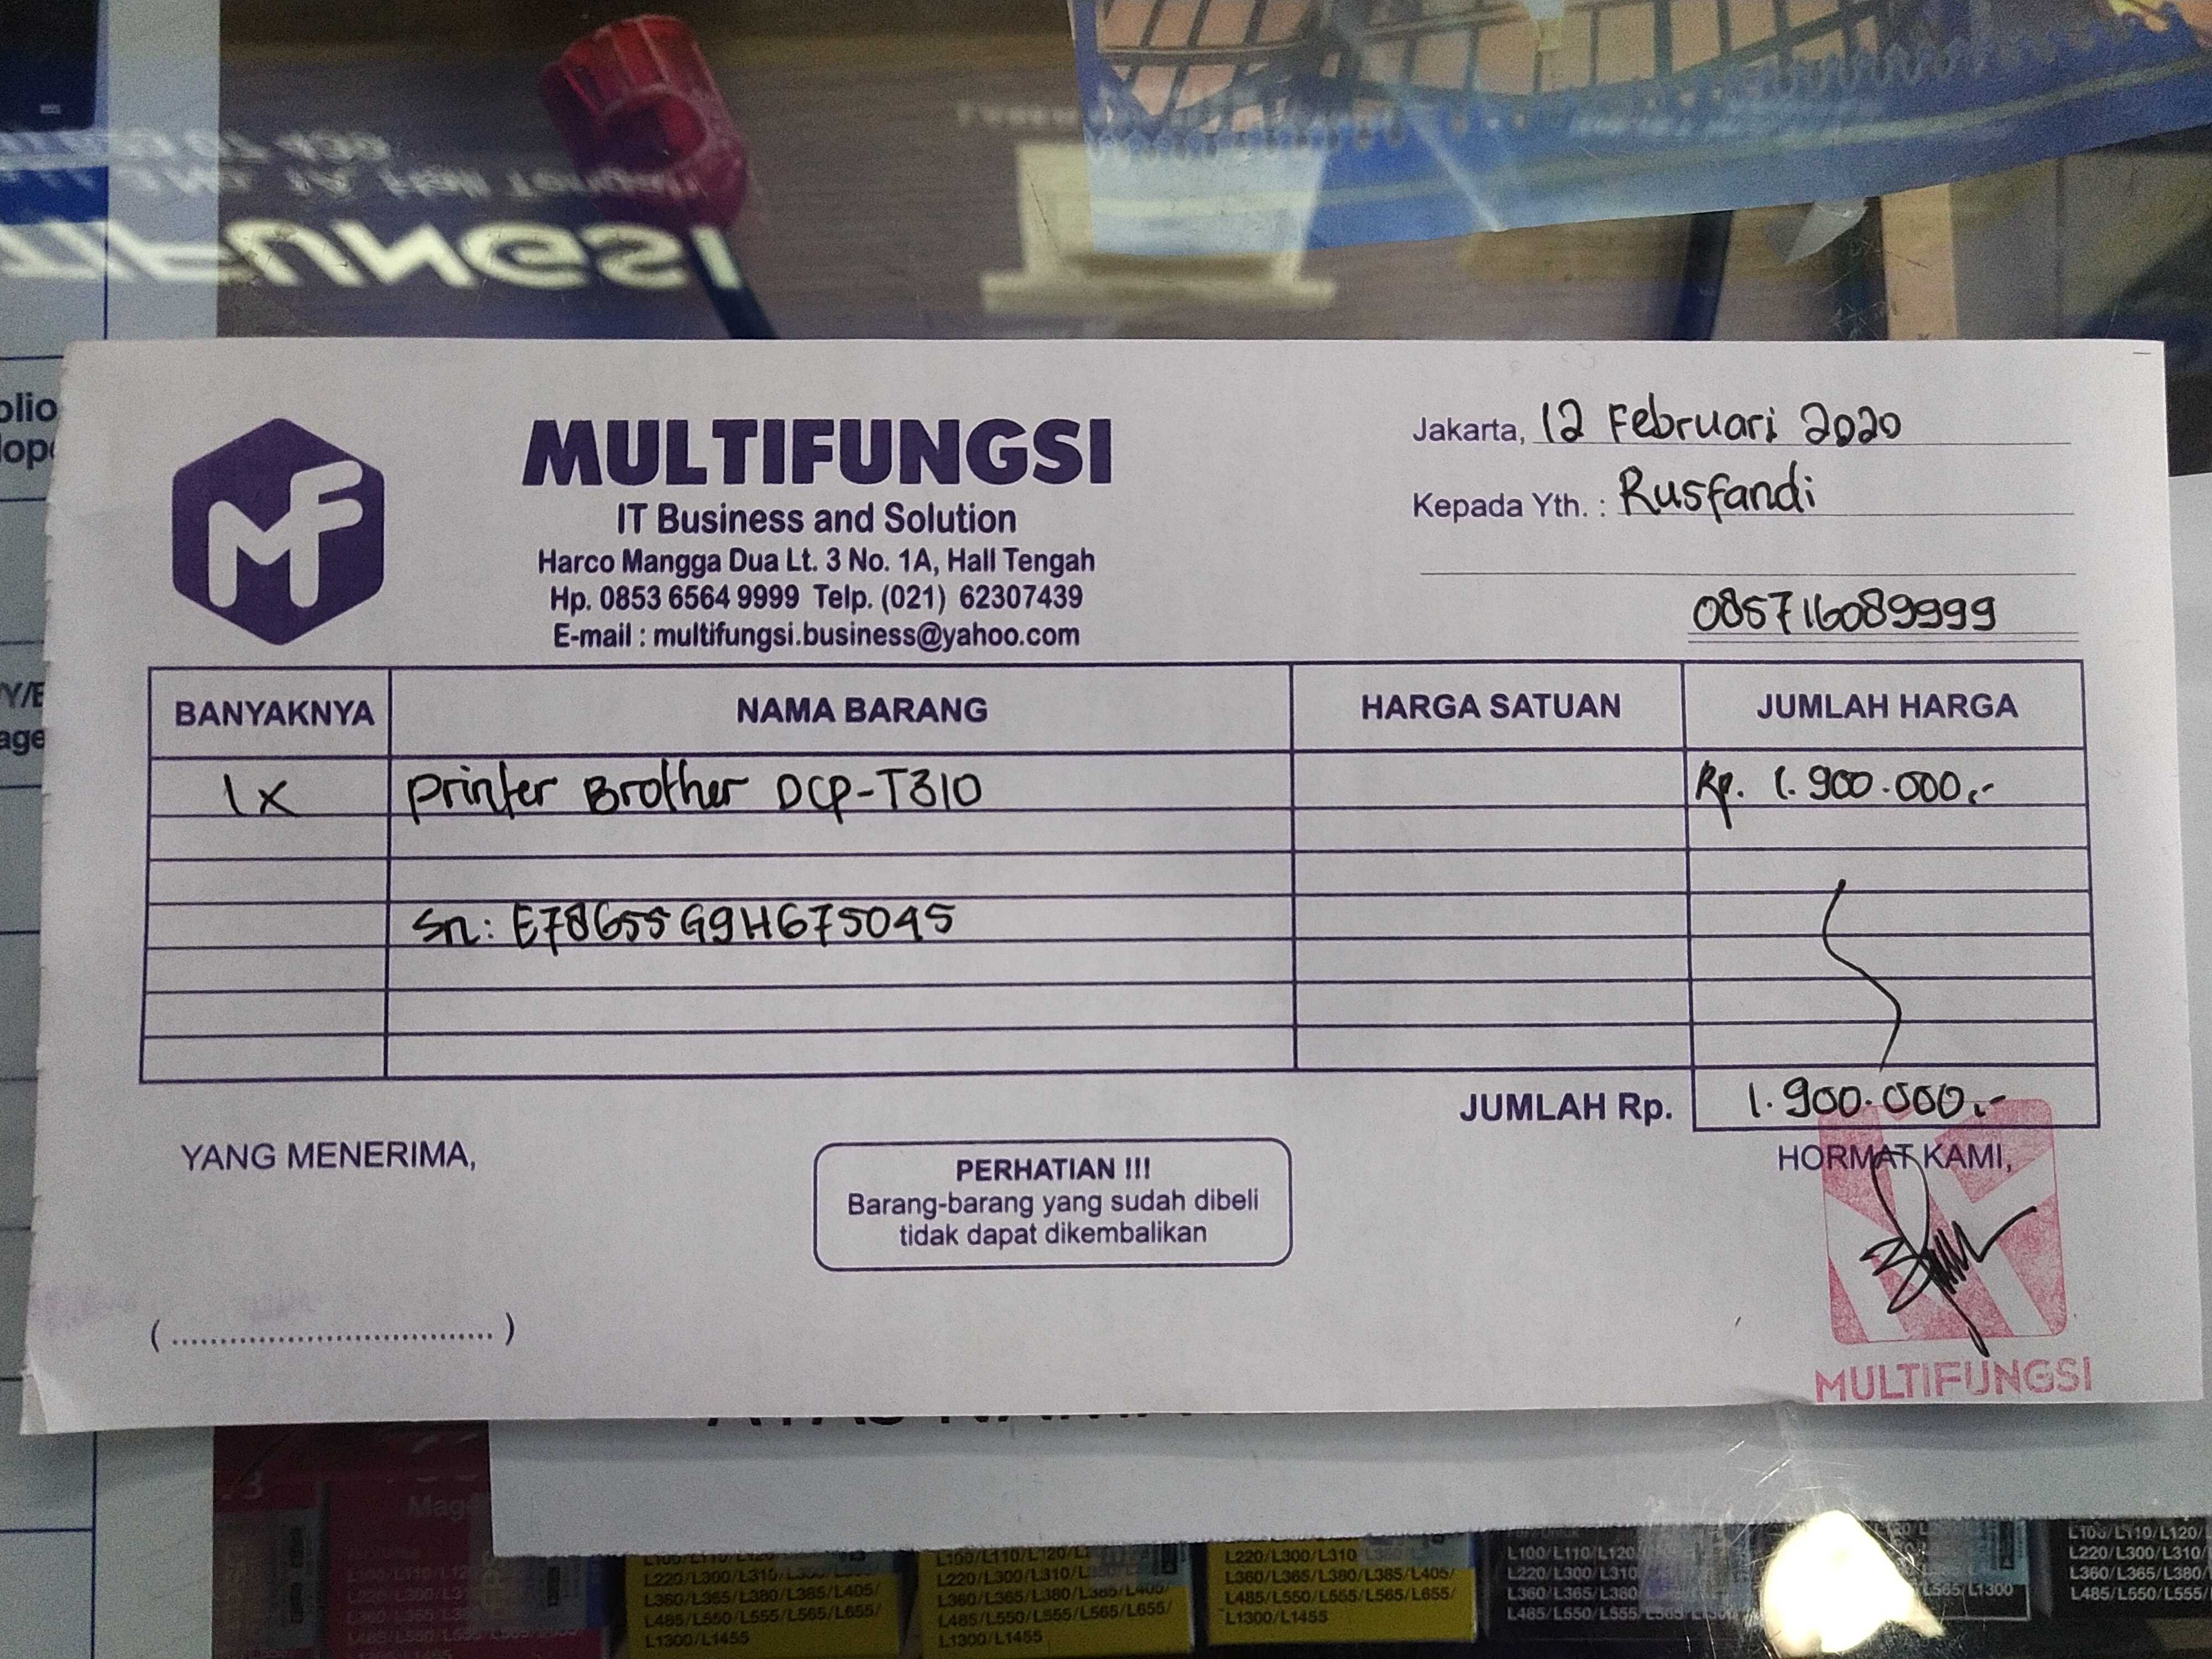 MF
MULTIFUNGSI
IT Business and Solution
Harco Mangga Dua Lt. 3 No. 1A, Hall Tengah
Hp. 0853 6564 9999 Telp. (021) 62307439
E-mail : multifungsi.business@yahoo.com
Jakarta, 12 Februari 2020
Kepada Yth. : Rusfandi
085716089999
BANYAKNYA NAMA BARANG HARGA SATUAN JUMLAH HARGA
1x Printer Brother DCP-T310 Rp. 1.900.000,-
Sn: E78655G9H675045
JUMLAH Rp. 1.900.000,-
YANG MENERIMA,
PERHATIAN !!!
Barang-barang yang sudah dibeli
tidak dapat dikembalikan
HORMAT KAMI,
(................................)
MULTIFUNGSI
L220/L300/L310
L360/L365/L380/L385/L405/
L485/L550/L555/L565/L655/
L1300/L1455
L220/L300/L310
L360/L365/L380/L385/L405/
L485/L550/L555/L565/L655/
L1300/L1455
L220/L300/L310
L360/L365/L380/L385/L405/
L485/L550/L555/L565/L655/
L1300/L1455
L100/L110/L120
L220/L300/L310
L360/L365/L380
L485/L550/L555
L565/L1300
L100/L110/L120/
L220/L300/L310/
L360/L365/L380/
L485/L550/L555/